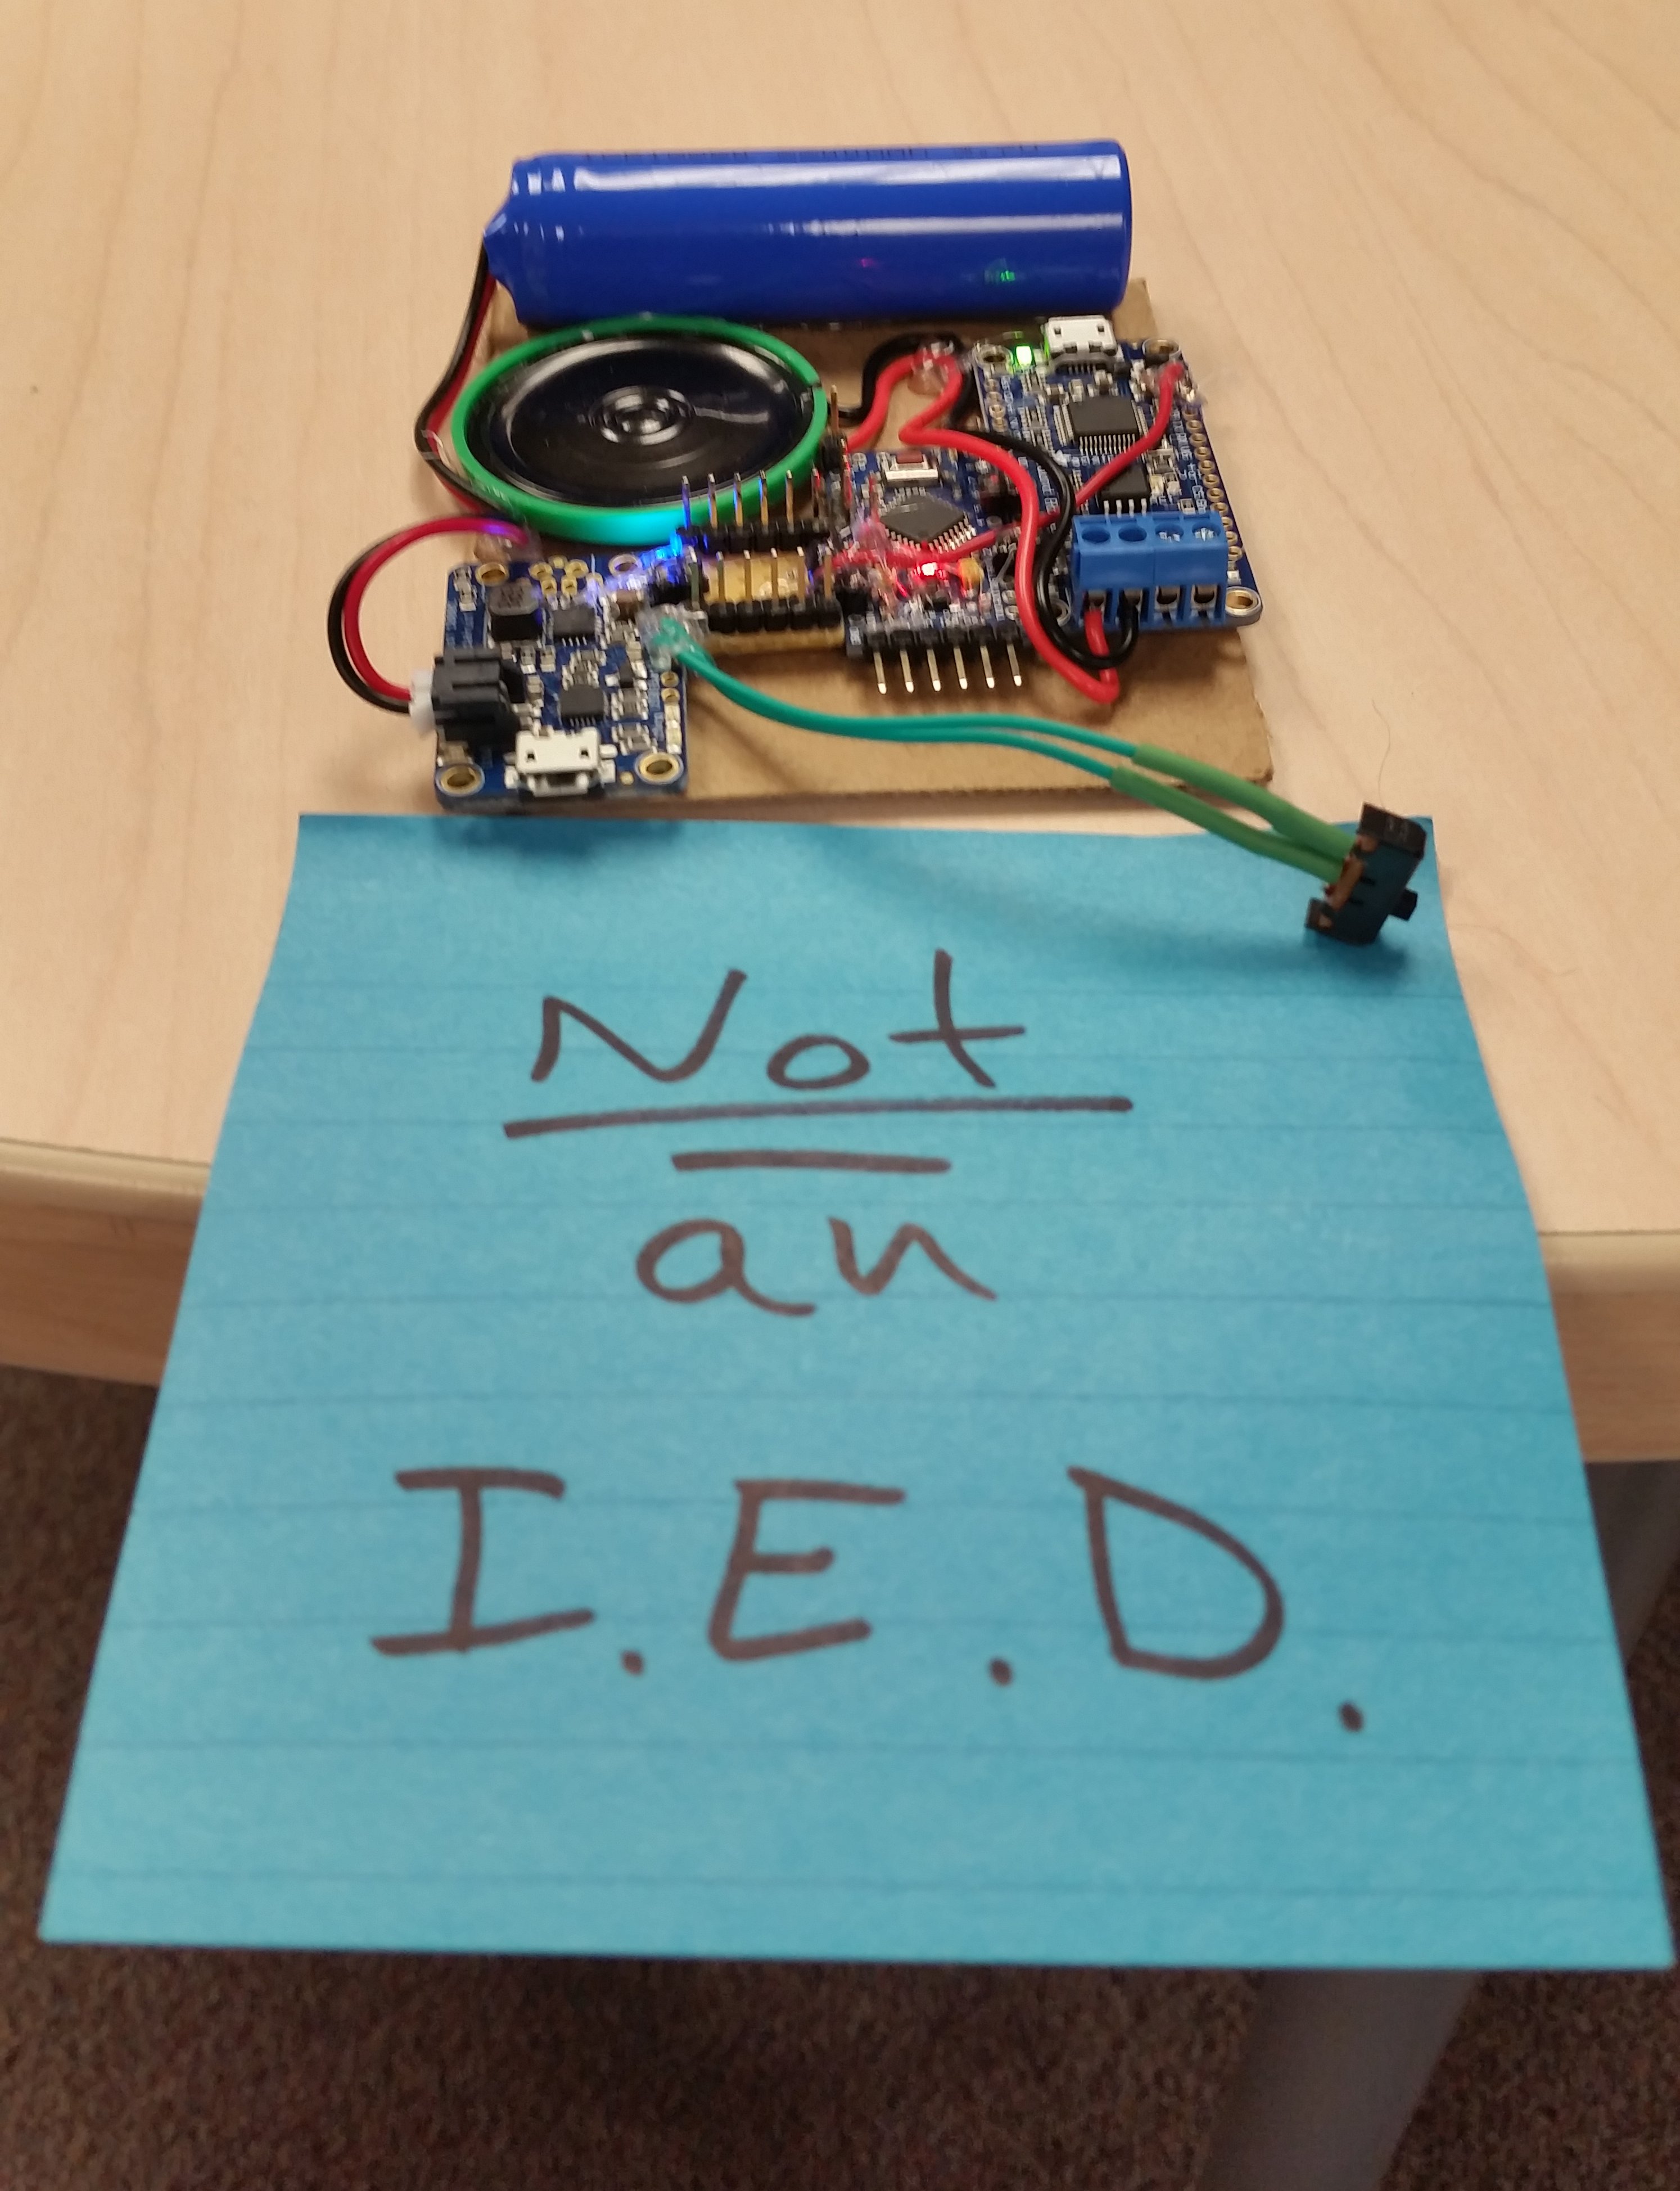 Not
an
I.E.D.